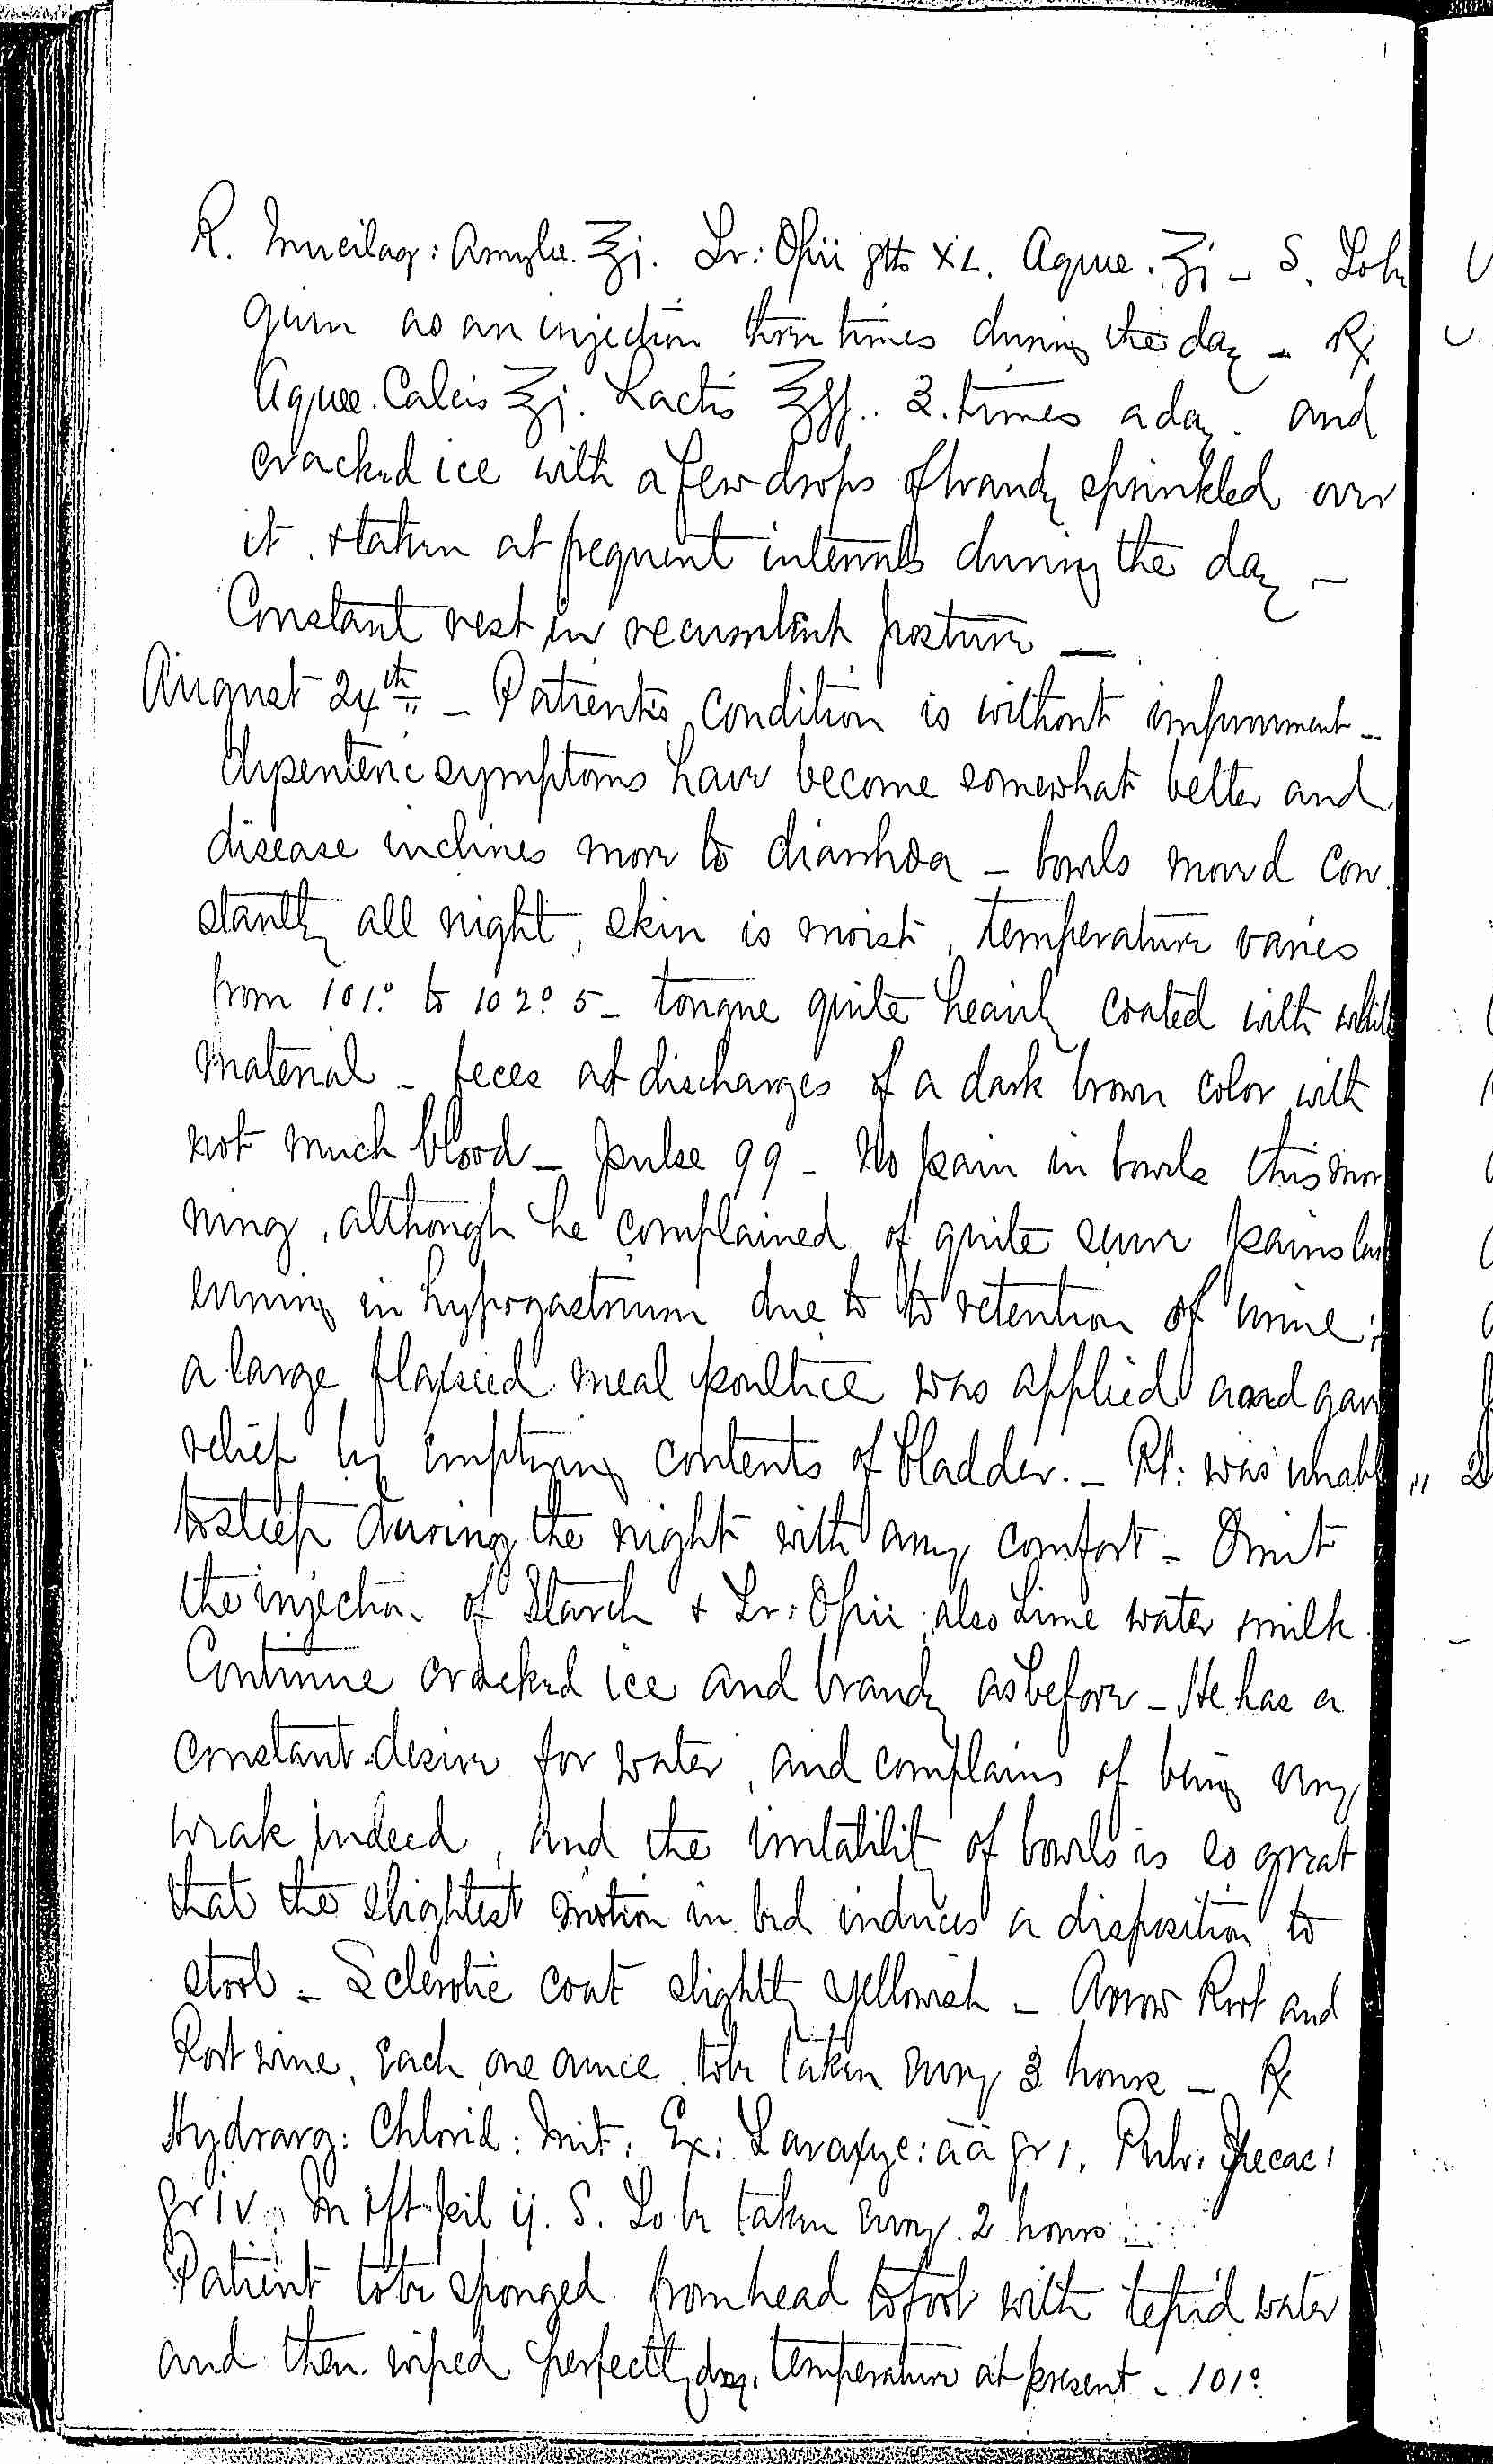 R. Mucilag: Amylae. ℥j. Tr: Opii gtts XL. Aquae. ℥j – S. To be
given as an injection three times during the day – ℞
Aquae. Calcis ℥j. Lactis ℥ss.. 3. times a day. and
cracked ice with a few drops of brandy sprinkled over
it. & taken at frequent intervals during the day –
Constant rest in recumbent posture —
August 24th – Patients condition is without improvement –
dysenteric symptoms have become somewhat better and
disease inclines more to diarrhoea – bowels moved con
stantly all night, skin is moist, temperature varies
from 101.° to 102.° 5 – tongue quite heavily coated with white
material – feces at discharges of a dark brown color with
not much blood – pulse 99 – No pain in bowels this mor
ning, although he complained of quite severe pains last
evening in hypogastrium due to to retention of urine;
a large flaxseed meal poultice was applied and gave
relief by emptying contents of bladder. – Pt: was unable
to sleep during the night with any comfort – Omit
the injection of Starch & Tr: Opii, also Lime water milk.
Continue cracked ice and brandy as before – He has a
constant desire for water, and complains of being very
weak indeed, and the irritability of bowels is so great
that the slightest motion in bed induces a disposition to
stool – Sclerotic coat slightly yellowish – Arrow Root and
Port wine, each one ounce to be taken every 3 hours – ℞
Hydrarg: Chlorid: Mit: Ex: Taraxyc: āā gr 1. Pulv: Ipecac:
gr iv. M & ft pil ij. S. To be taken every 2 hours
Patient to be sponged from head to foot with tepid water
and then wiped perfectly dry. temperature at present – 101°.